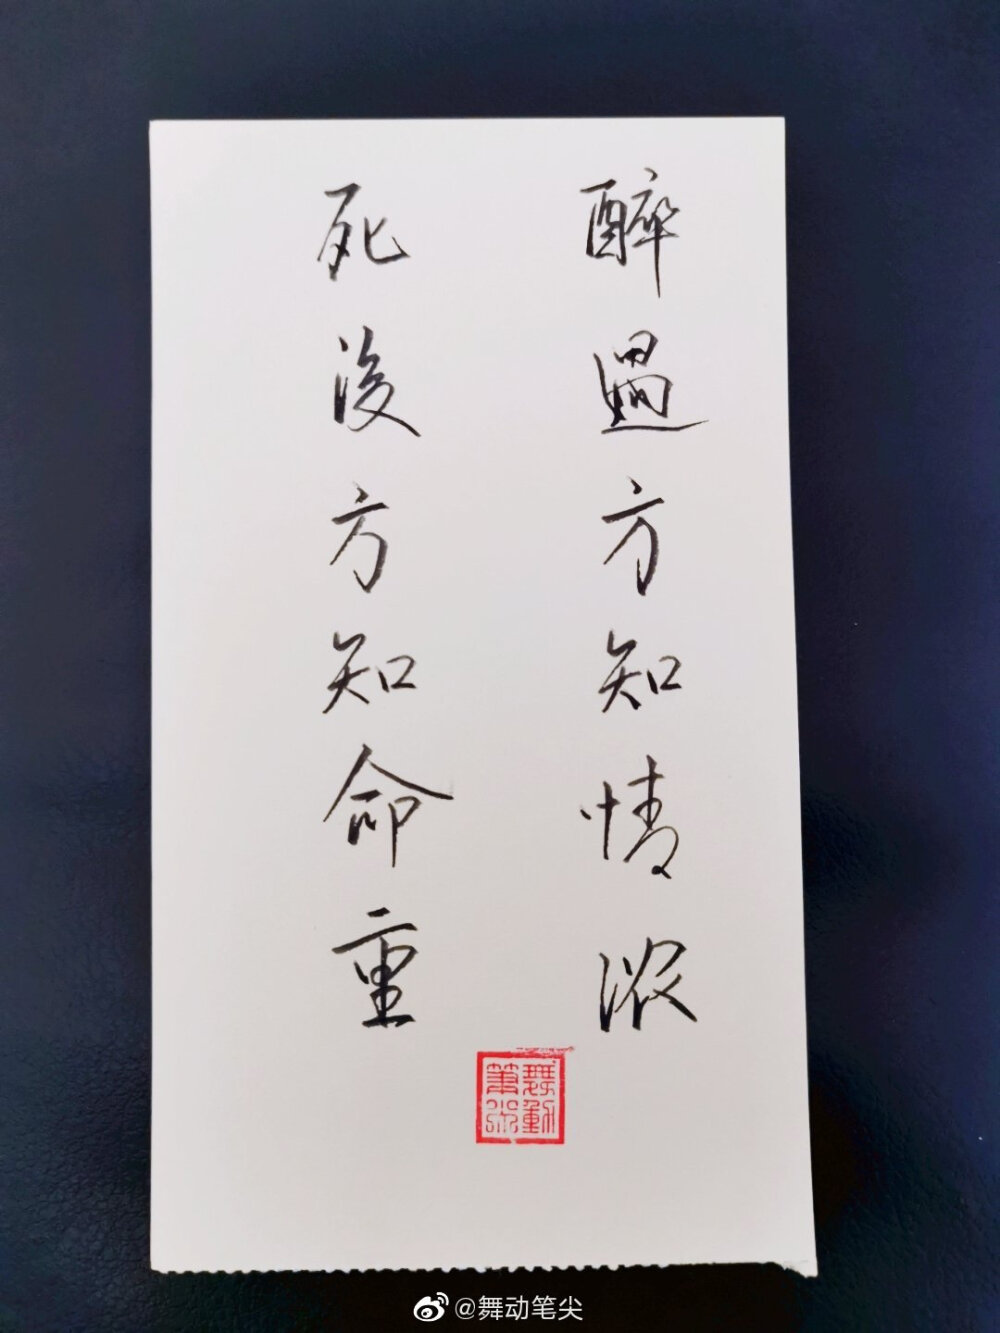 醉過方知情浓
死後方知命重
舞動筆尖
@舞动笔尖